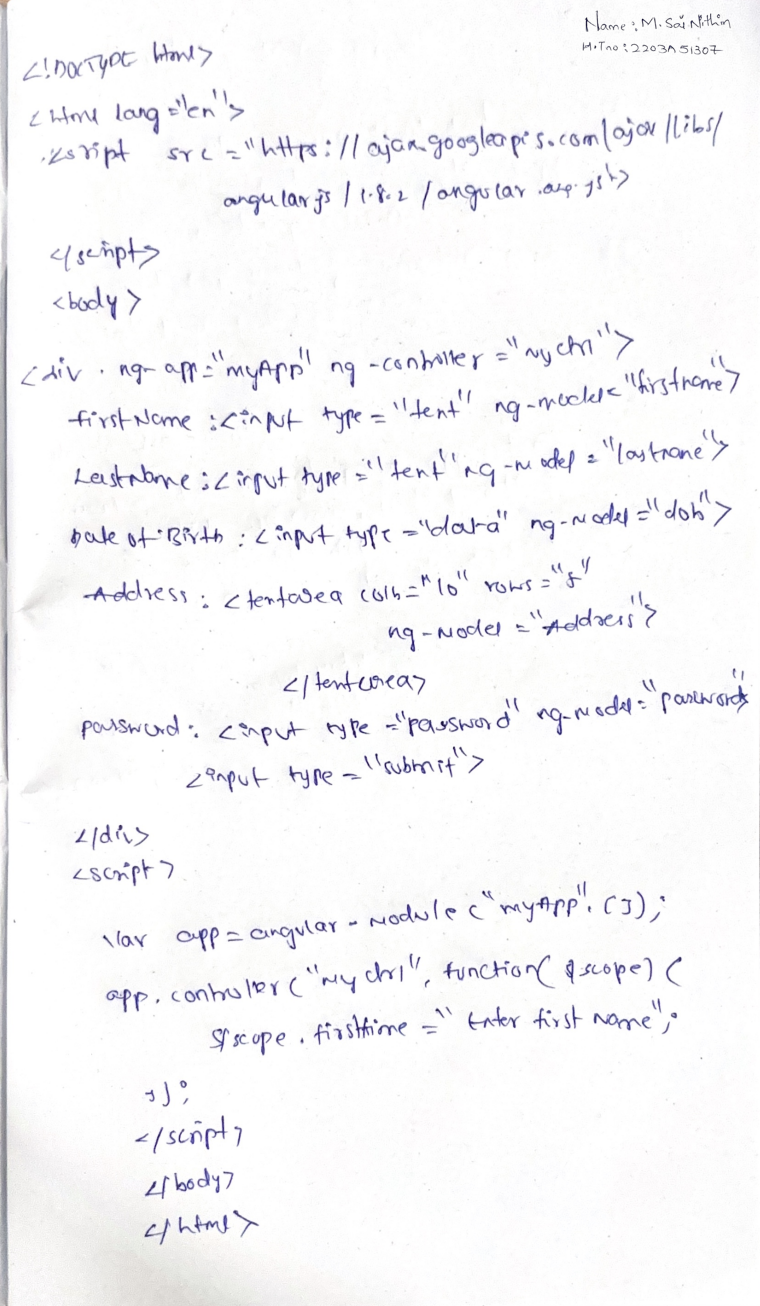 Name : M. Sai Nithin
H.Tno : 2203A51307
<!DOCTYPE html>
<html lang ="en">
<script src = "https://ajax.googleapis.com/ajax/libs/
angularjs / 1.8.2 / angular .js">
</script>
<body>
<div ng-app="myApp" ng-controller ="myctrl">
firstName : <input type = "text" ng-model= "firstname">
LastName : <input type = "text" ng-model = "lastname">
Date of Birth : <input type ="data" ng-model ="dob">
Address : <textarea cols="10" rows="5"
ng-model ="Address">
</textarea>
password : <input type ="password" ng-model="password">
<input type ="submit">
</div>
<script>
Var app = angular - module ("myApp", []);
app. controller ("myctrl", function( $scope) {
$scope . firsttime =" Enter first name";
});
</script>
</body>
</html>